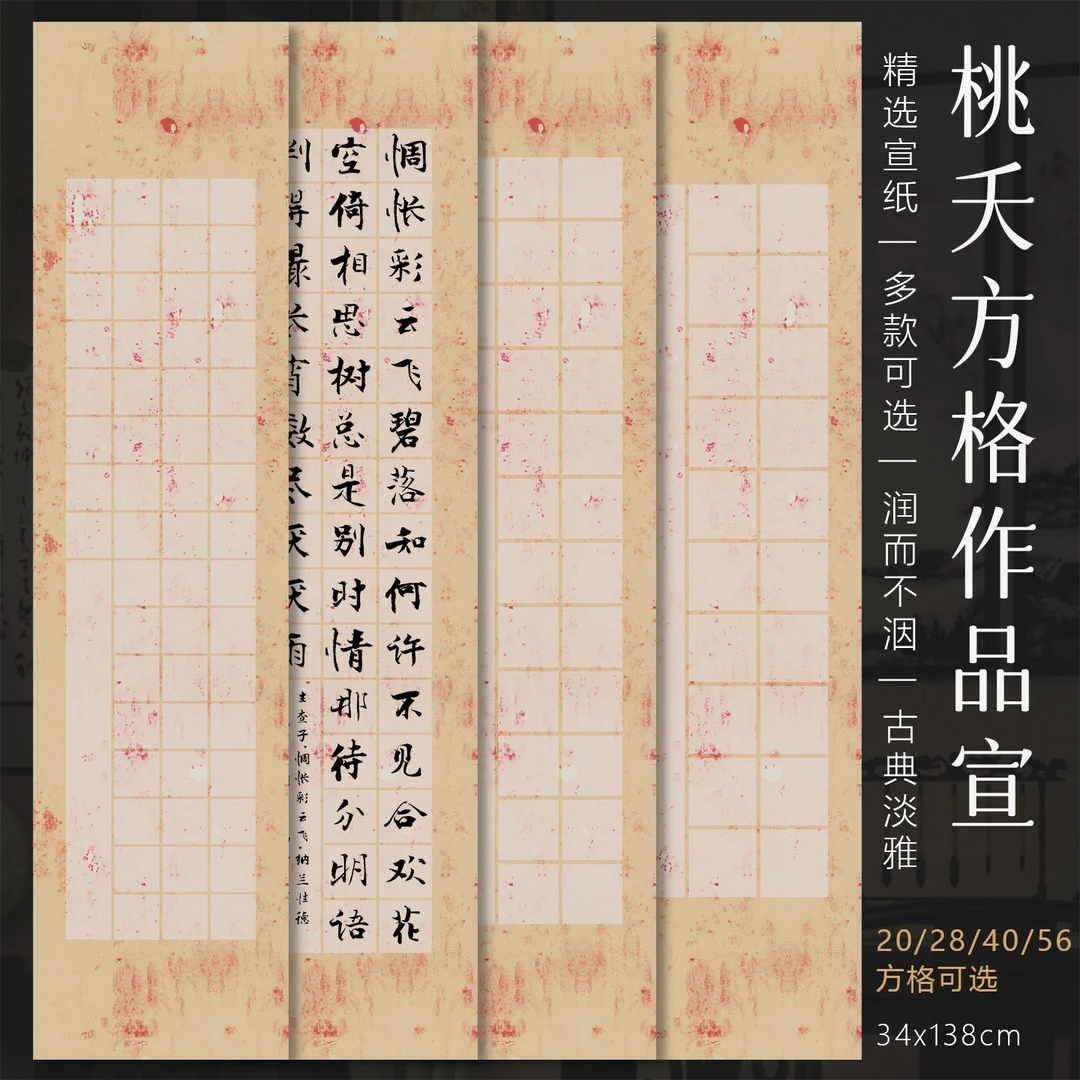 桃夭方格作品宣
精选宣纸 | 多款可选 | 润而不洇 | 古典淡雅
20/28/40/56
方格可选
34x138cm
惆怅彩云飞碧落知何许不见合欢花
空倚相思树总是别时情那待分明语
判得最长宵数尽厌厌雨
生查子·惆怅彩云飞·纳兰性德